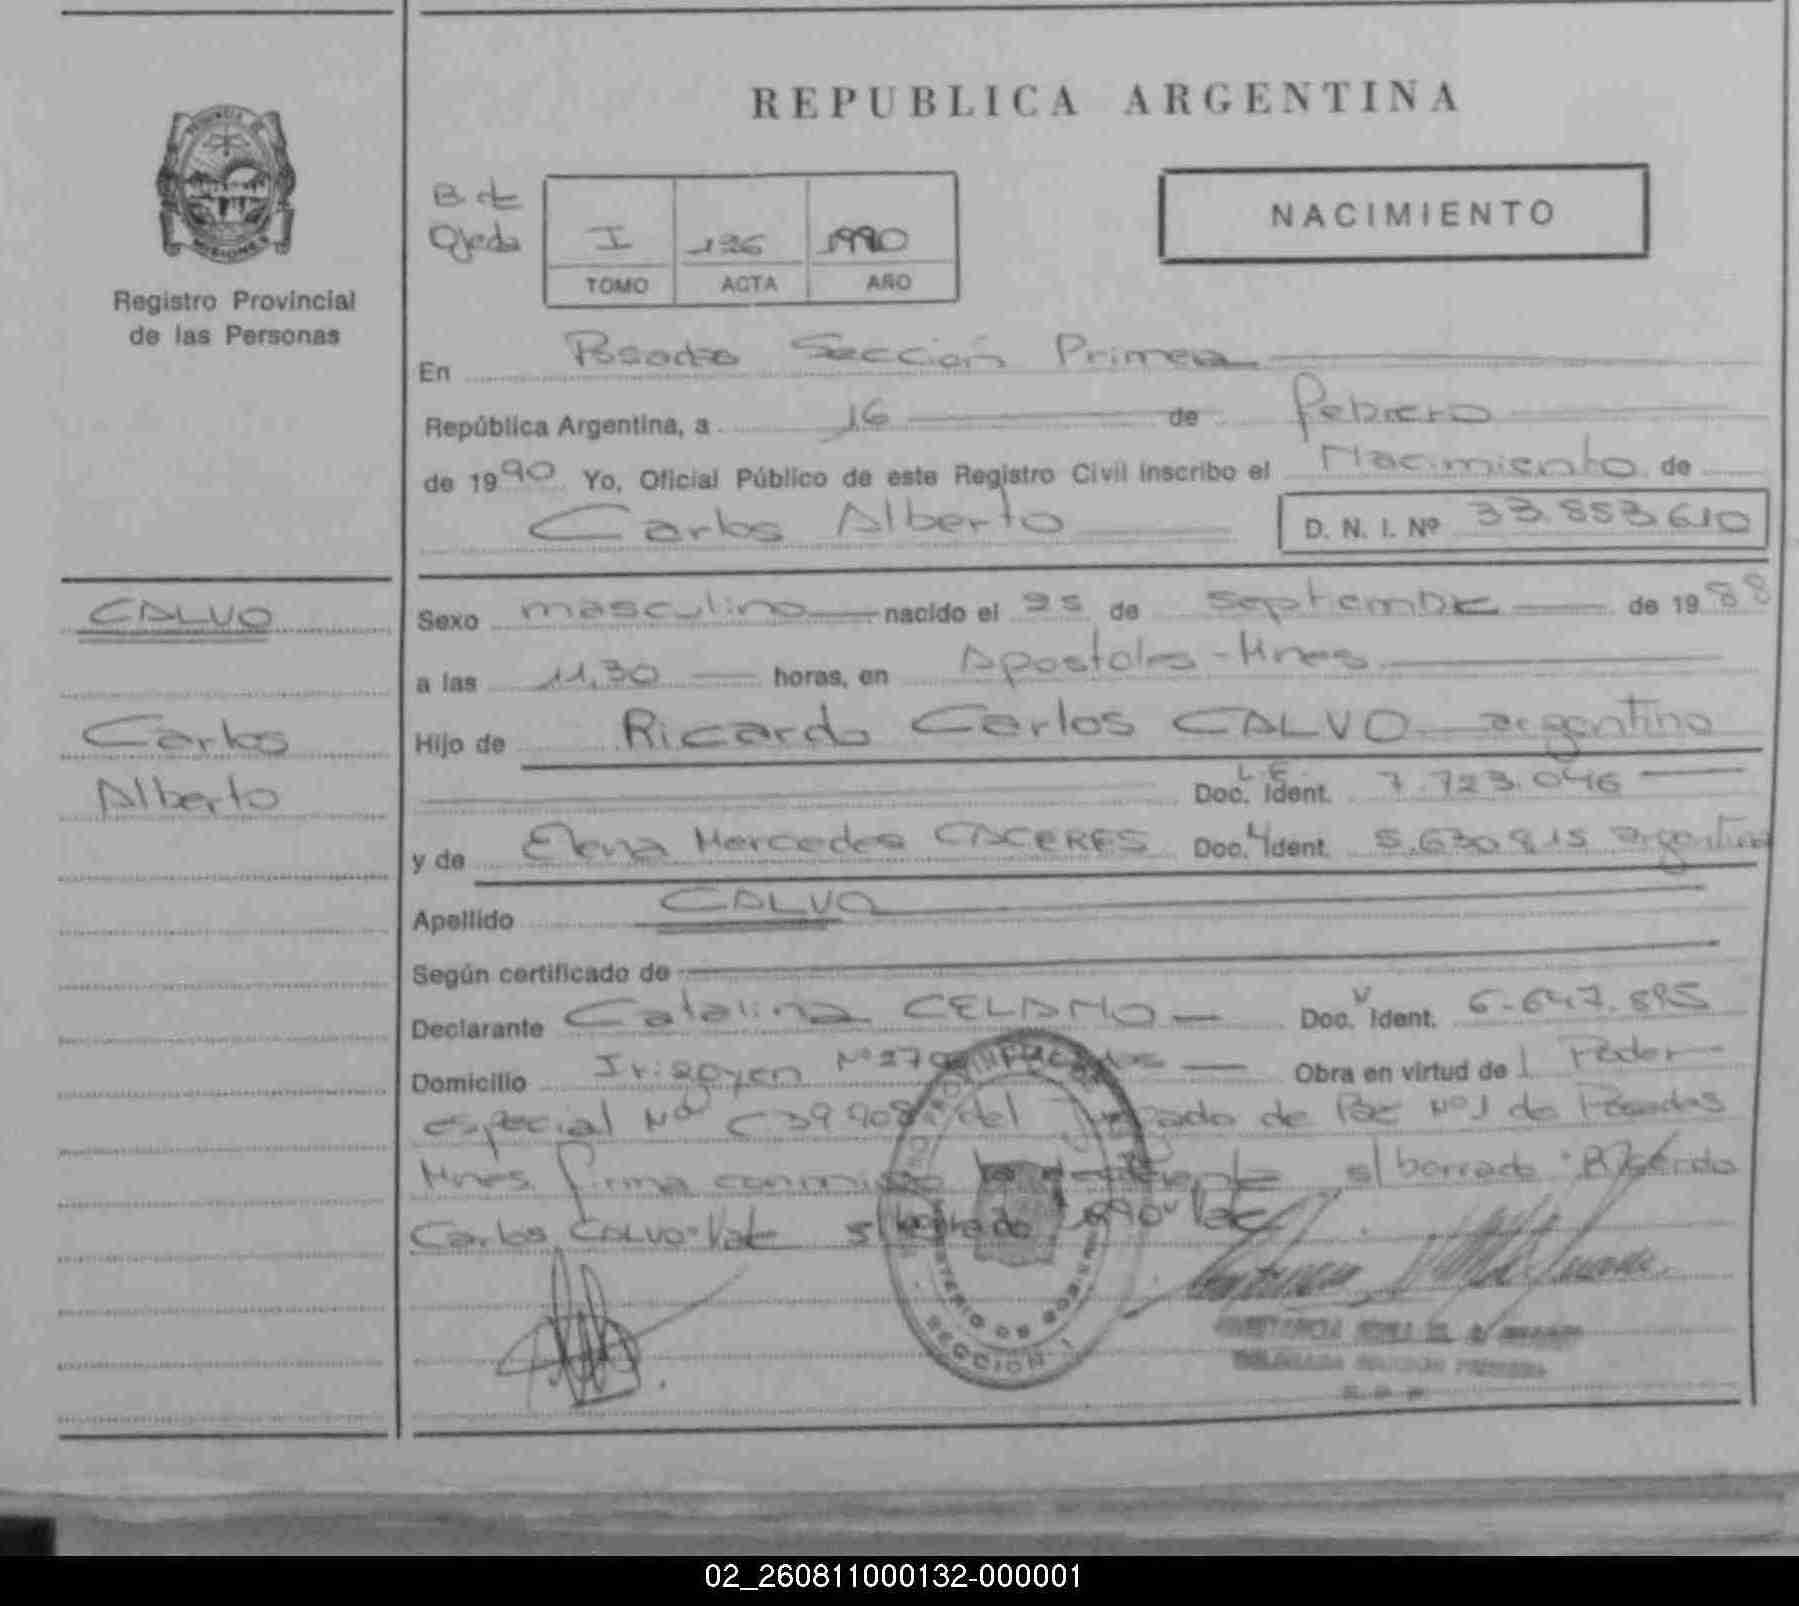 REPUBLICA ARGENTINA
PROVINCIA DE
MISIONES
Registro Provincial
de las Personas
B. de
Ojeda
I 136 1990
TOMO ACTA AÑO
NACIMIENTO
En Posadas Sección Primera
República Argentina, a 16 de febrero
de 1990 Yo, Oficial Público de este Registro Civil inscribo el Nacimiento de
Carlos Alberto D. N. I. Nº 33.853.610
CALVO
Carlos
Alberto
Sexo masculino nacido el 25 de septiembre de 1988
a las 11,30 horas, en Apostoles - Mnes
Hijo de Ricardo Carlos CALVO argentino
L.E.
Doc. Ident. 7.723.046
y de Elena Mercedes CACERES Doc. Ident. 5.630.815 argentina
Apellido CALVO
Según certificado de
Declarante Catalina CELANO Doc. Ident. 6.647.895
Domicilio Irigoyen Nº Obra en virtud de Poder
especial Nº C 39908 del Juzgado de Paz Nº 1 de Posadas
Mnes. firma conmigo la s/ borrado "Ricardo
Carlos CALVO" Vale s/ borrado 1990" Vale
MINISTERIO DE GOBIERNO
SECCION 1
02_260811000132-000001